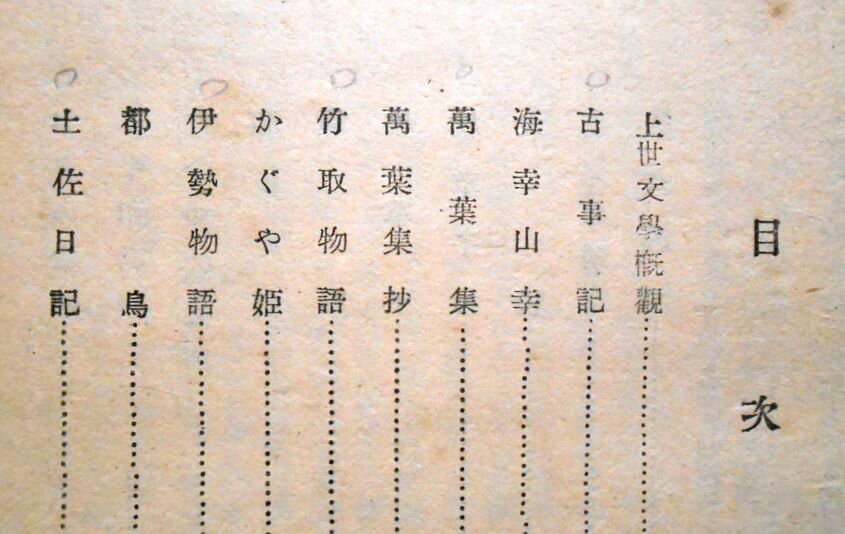 目次
上世文學概觀
古事記
海幸山幸
萬葉集
萬葉集抄
竹取物語
かぐや姬
伊勢物語
都鳥
土佐日記